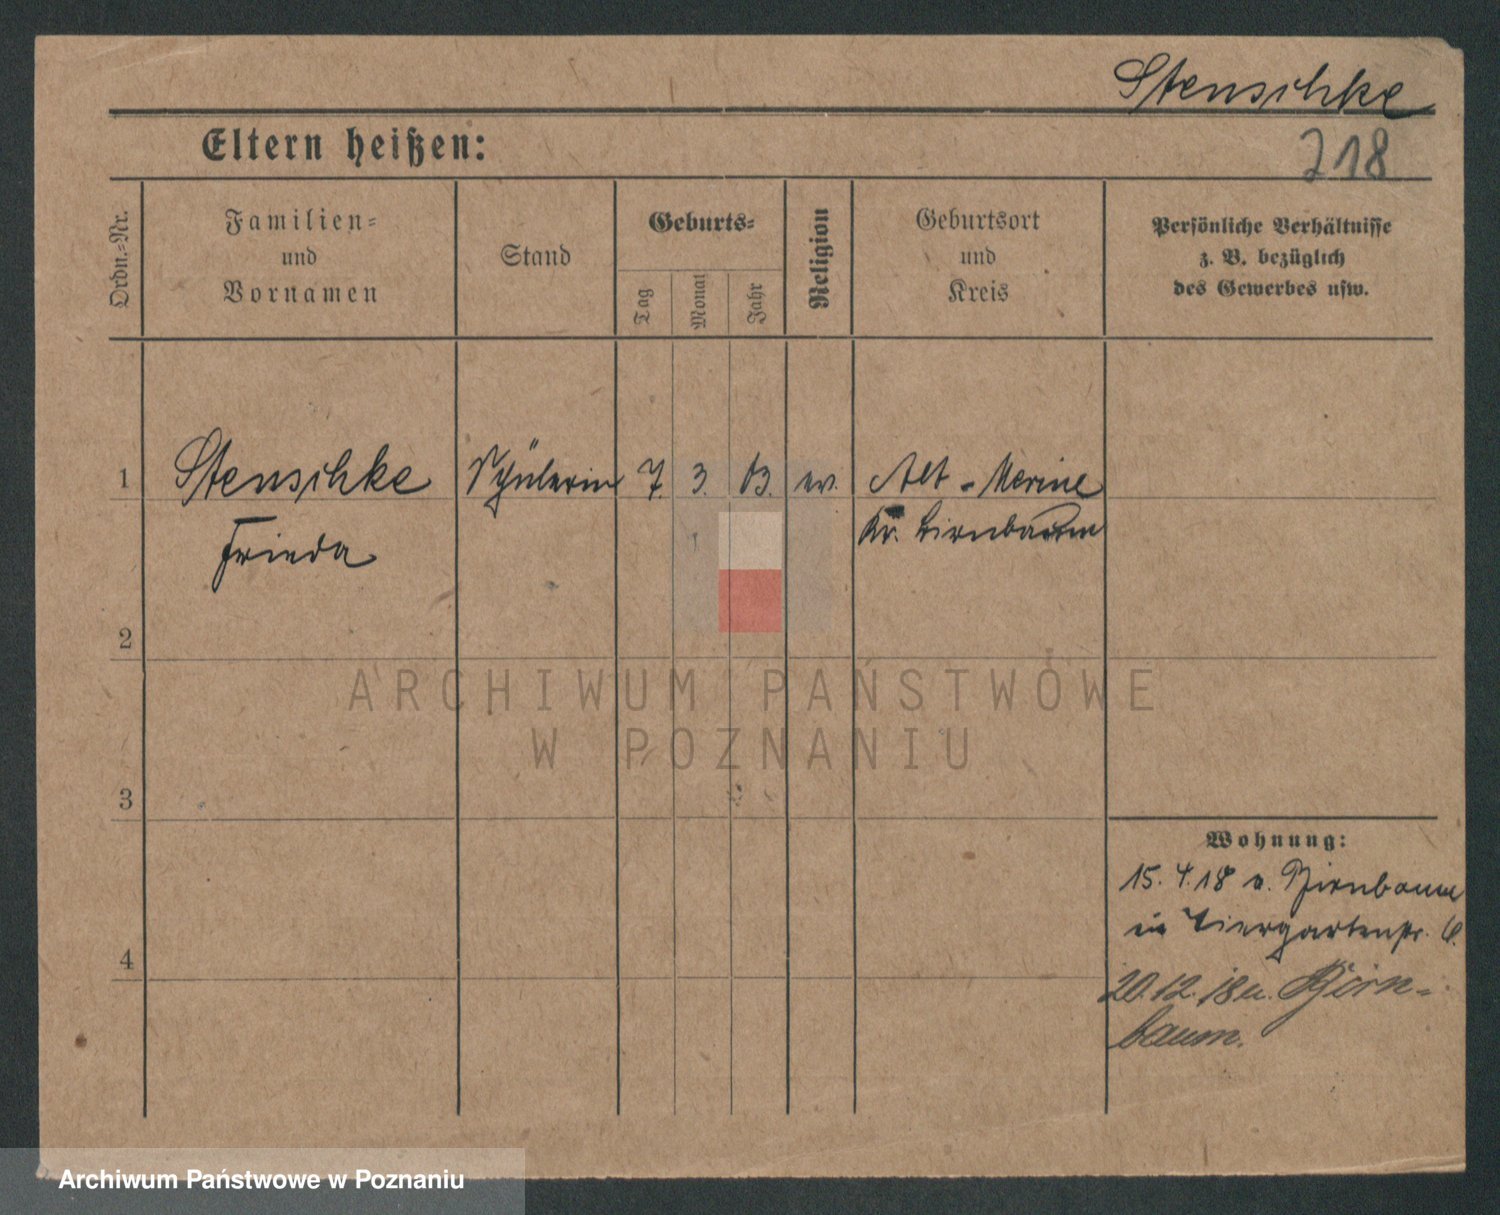 Stenschke
Eltern heißen:
218
Ordn.-Nr.
Familien-
und
Vornamen
Stand
Geburts-
Tag
Monat
Jahr
Religion
Geburtsort
und
Kreis
Persönliche Verhältnisse
z. B. bezüglich
des Gewerbes usw.
1
Stenschke
Frieda
Schülerin
7.
3.
03.
ev.
Alt-Merine
Kr. Birnbaum
2
ARCHIWUM PAŃSTWOWE
W POZNANIU
3
Wohnung:
15. 4. 18 v. Birnbaum
in Tiergartenstr. 6.
4
20.12.18 n. Birn-
baum.
Archiwum Państwowe w Poznaniu